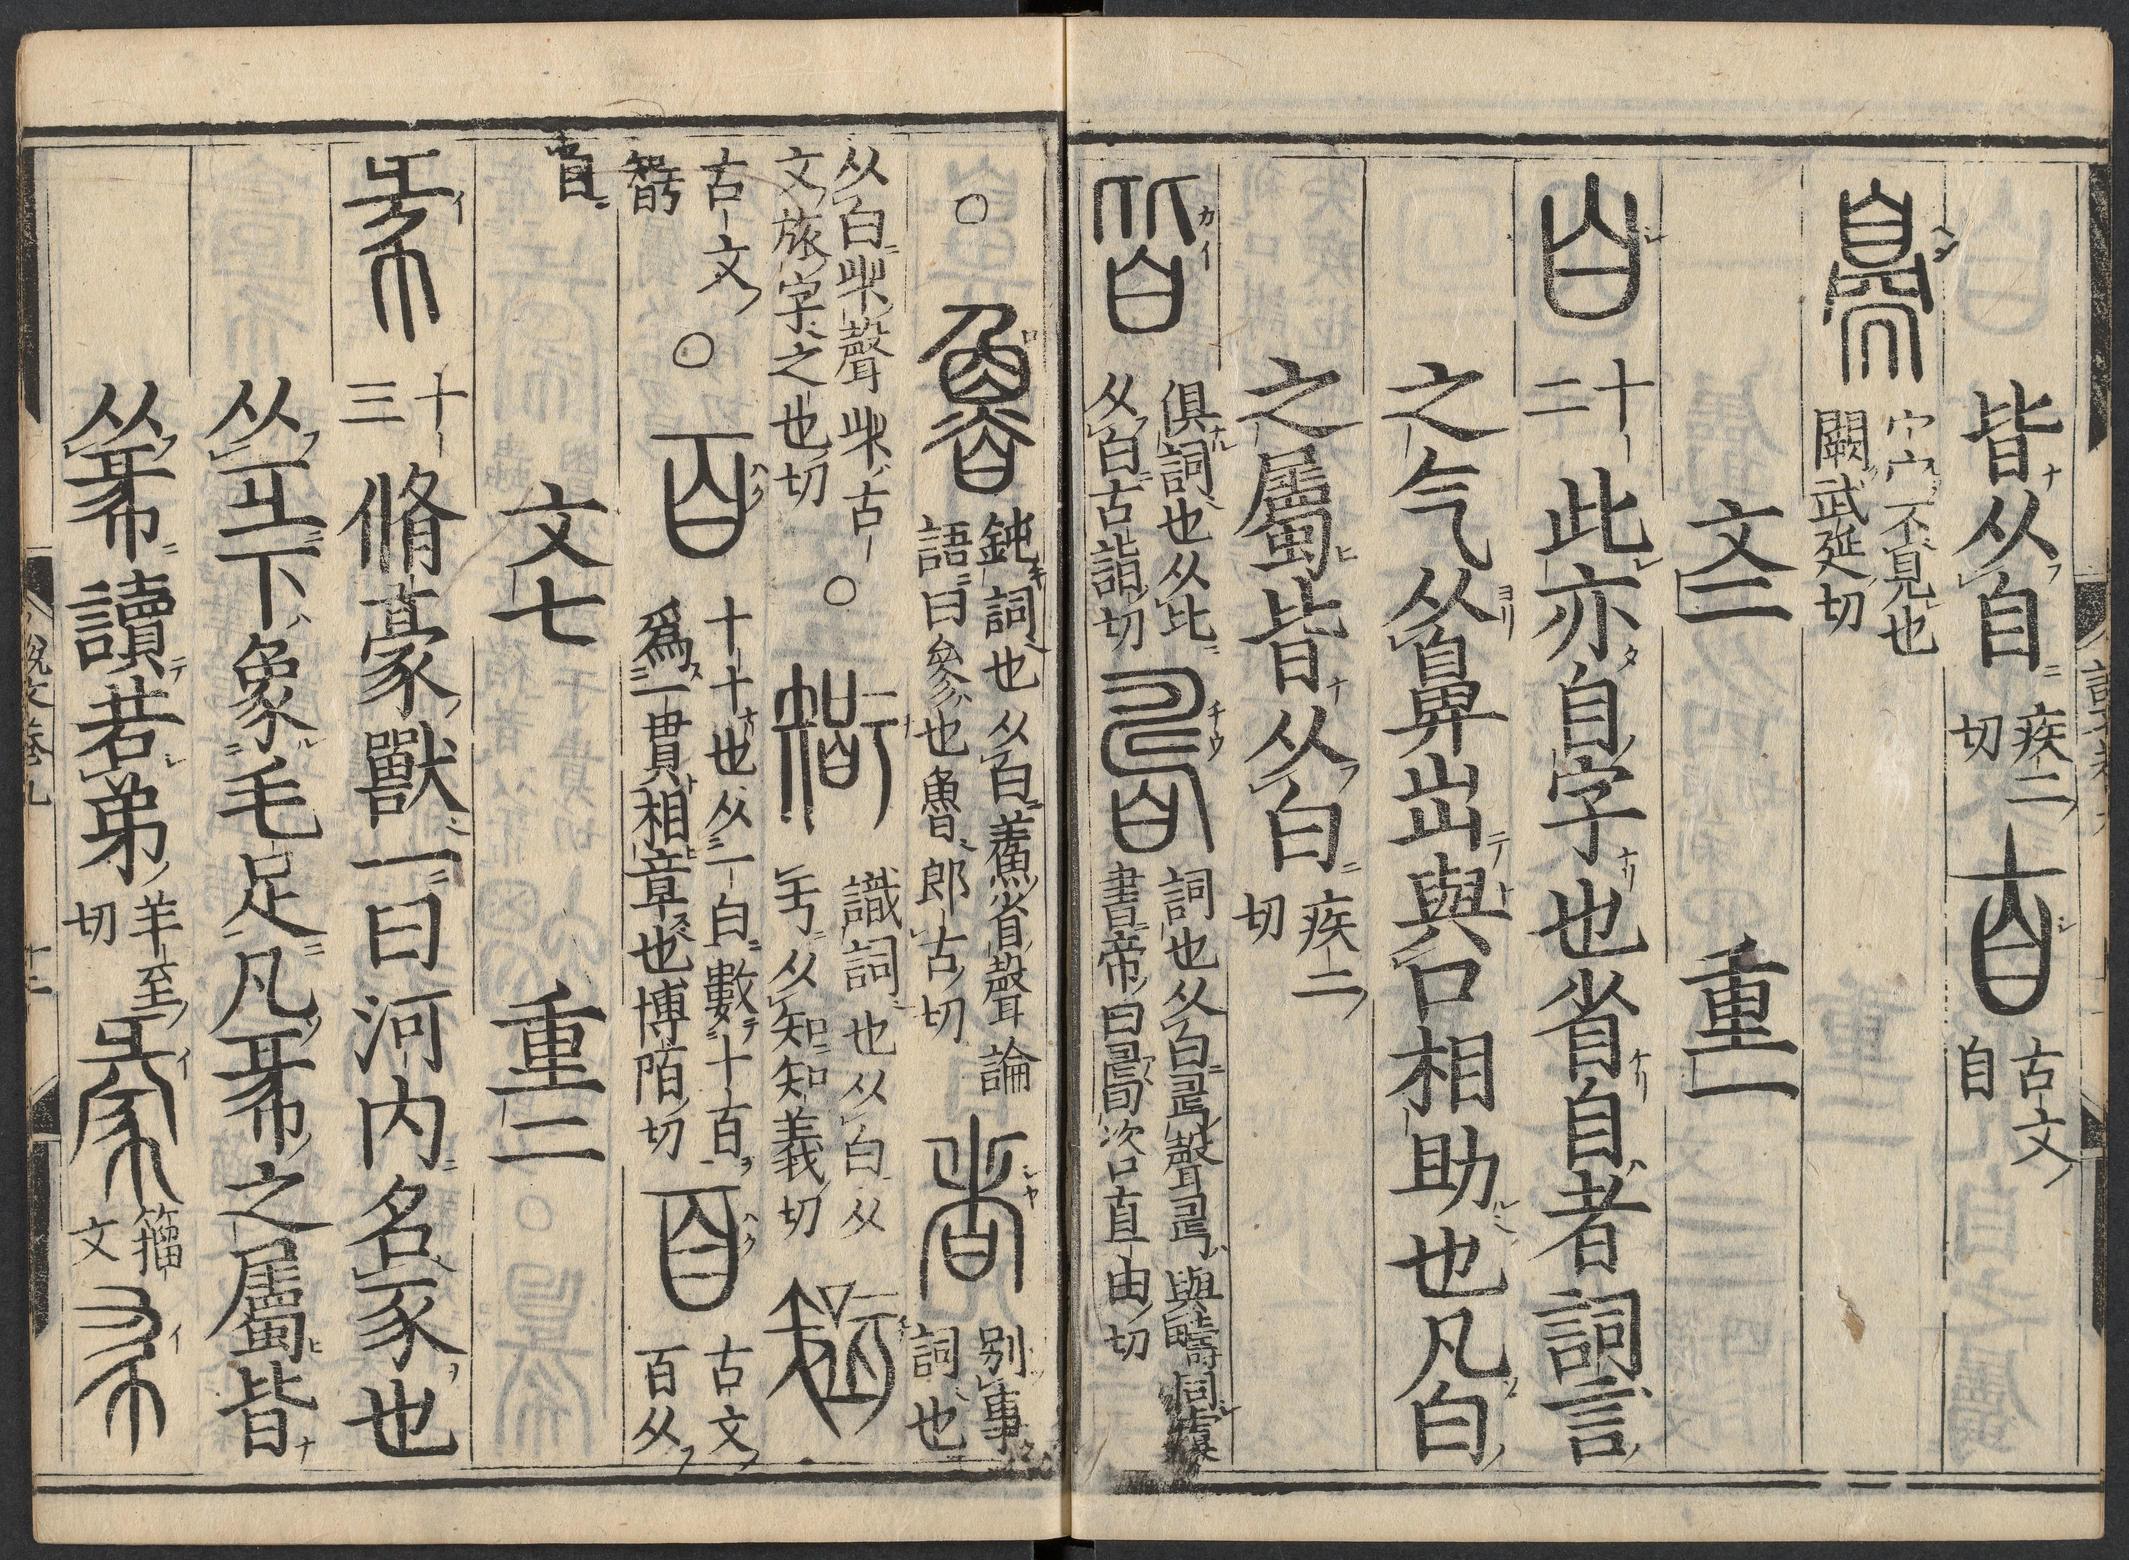 皆从自 疾二切 𦣹 古文自
臱 宀宀不見也闕武延切
文二 重一
白 十二 此亦自字也省自者詞言
之气从鼻出與口相助也凡白
之屬皆从白 疾二切
皆 俱詞也从比从白古諧切 𠷎 詞也从白𠃬聲𠃬與疇同虞書帝曰𠷎咨口直由切
○ 魯 鈍詞也从白䱉省聲論語曰參也魯郎古切 者 別事詞也
从白𣥐聲𣥐古文旅字之也切 ○ 𥏼 識詞也从白从亏从知知義切
古文𥏼 ○ 百 十十也从一白數十百爲一貫相章也博陌切 百 古文百从
自 文七 重二
㣇 十三 脩豪獸一曰河内名豕也
从彑下象毛足凡㣇之屬皆
从㣇讀若弟 羊至切 籀文
說文卷九 十二